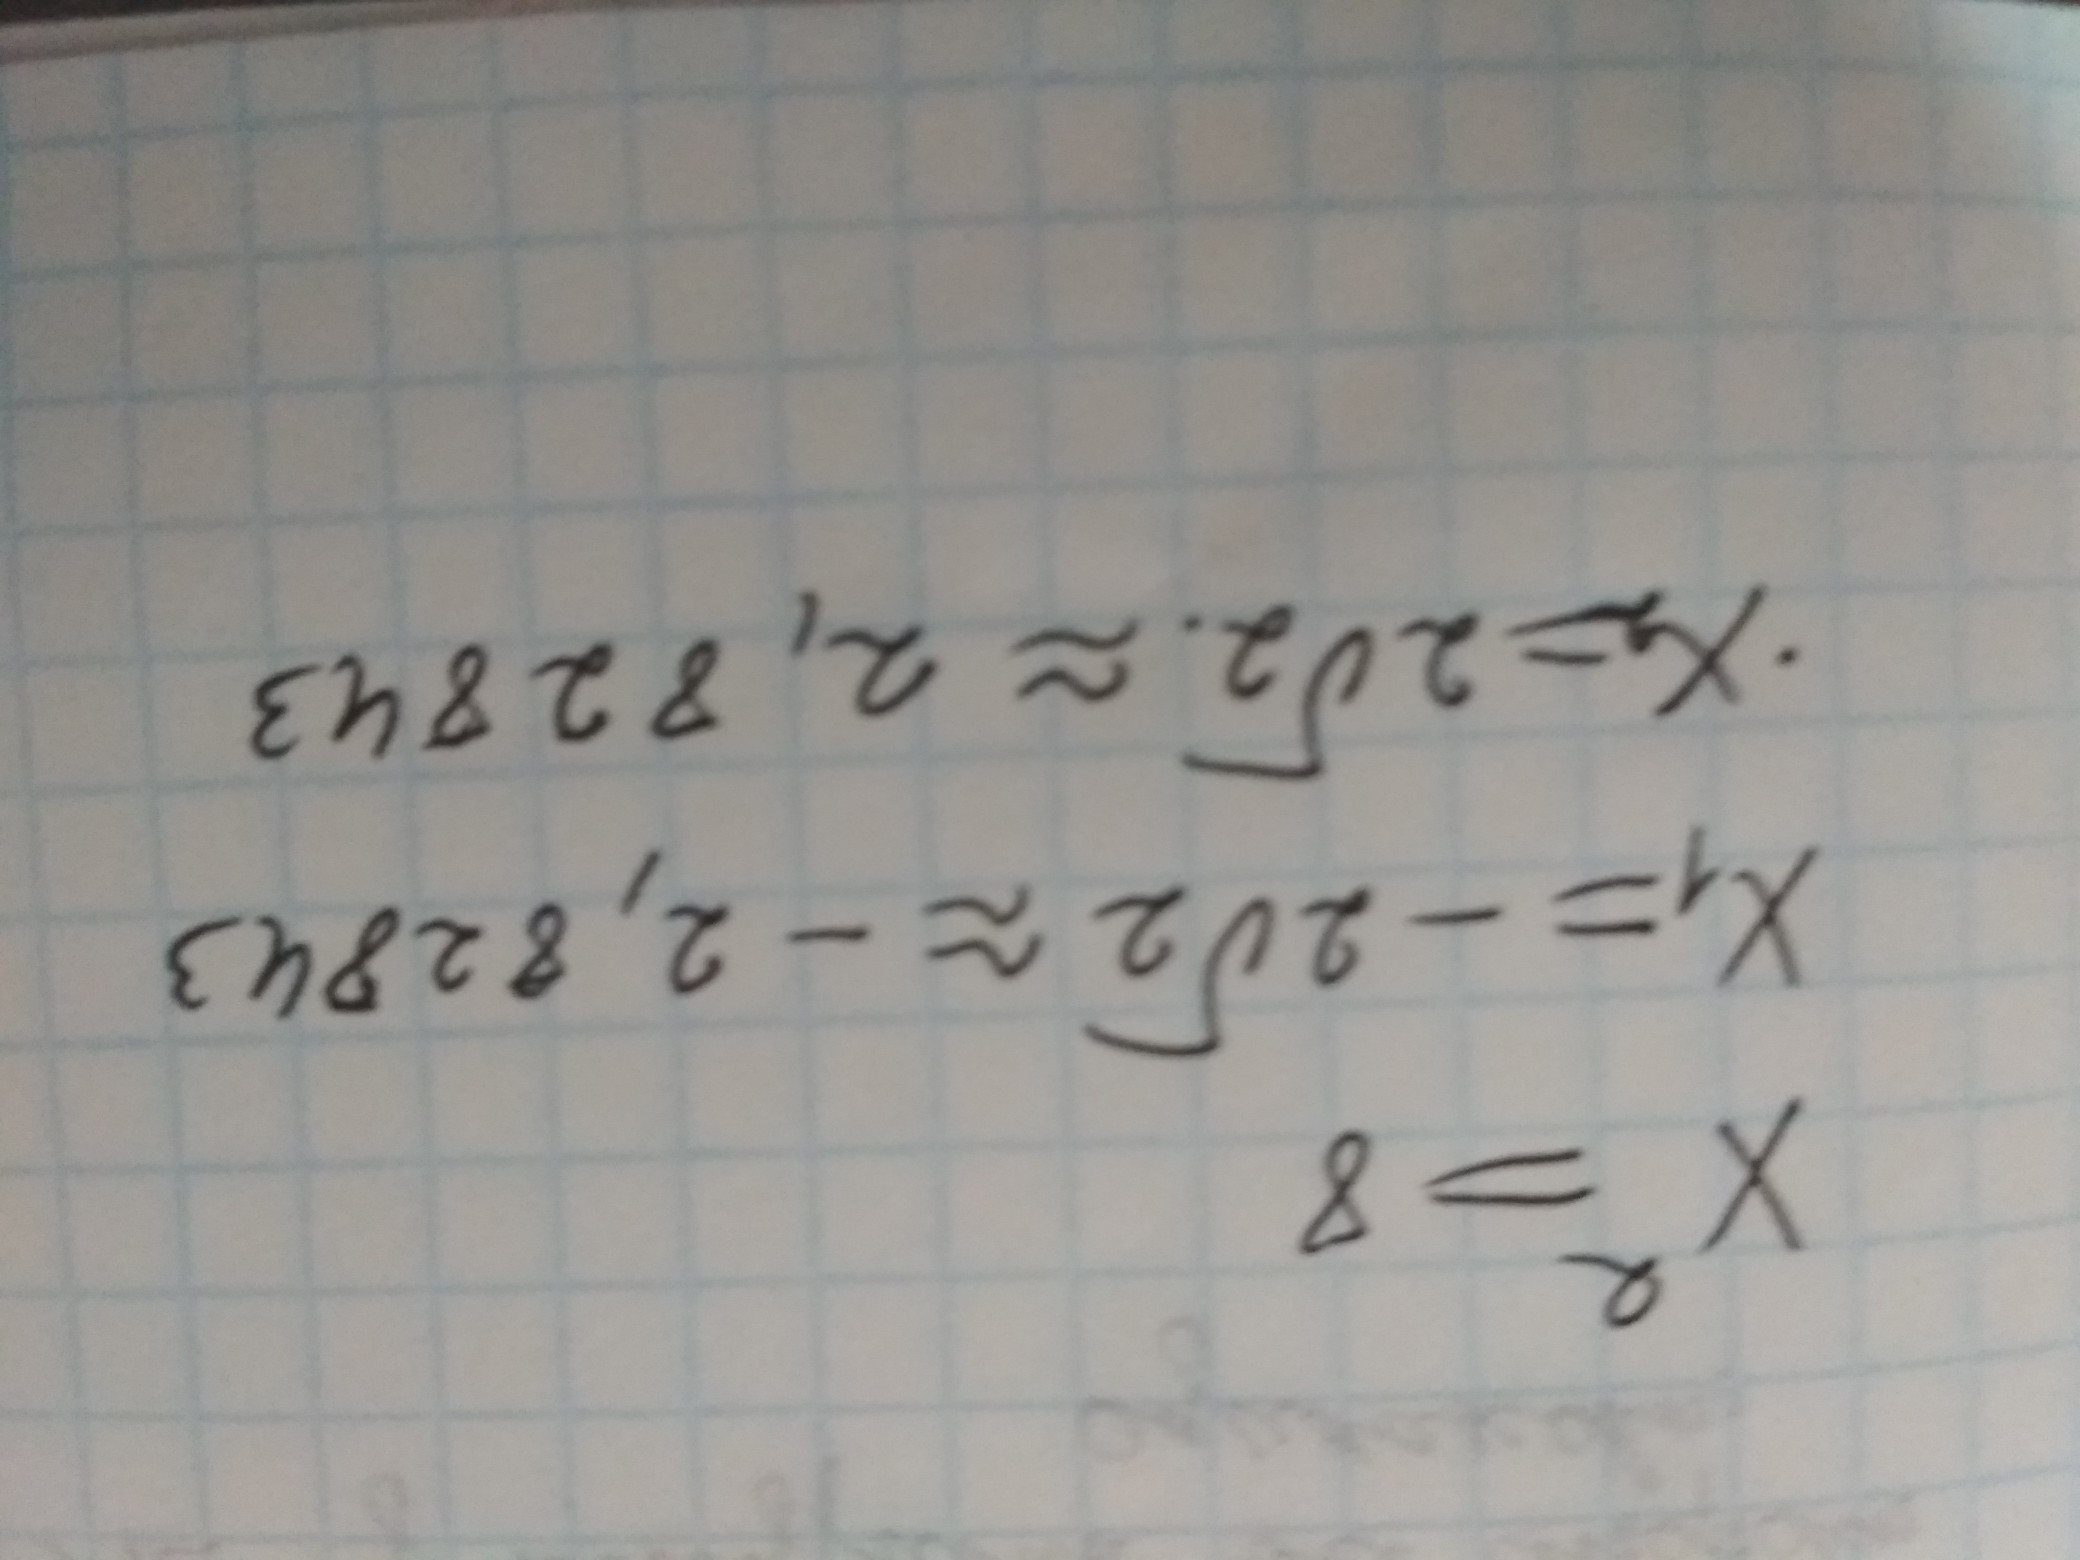 x² = 8
x₁ = - 2√2 ≈ - 2,82843
x₂ = 2√2. ≈ 2,82843